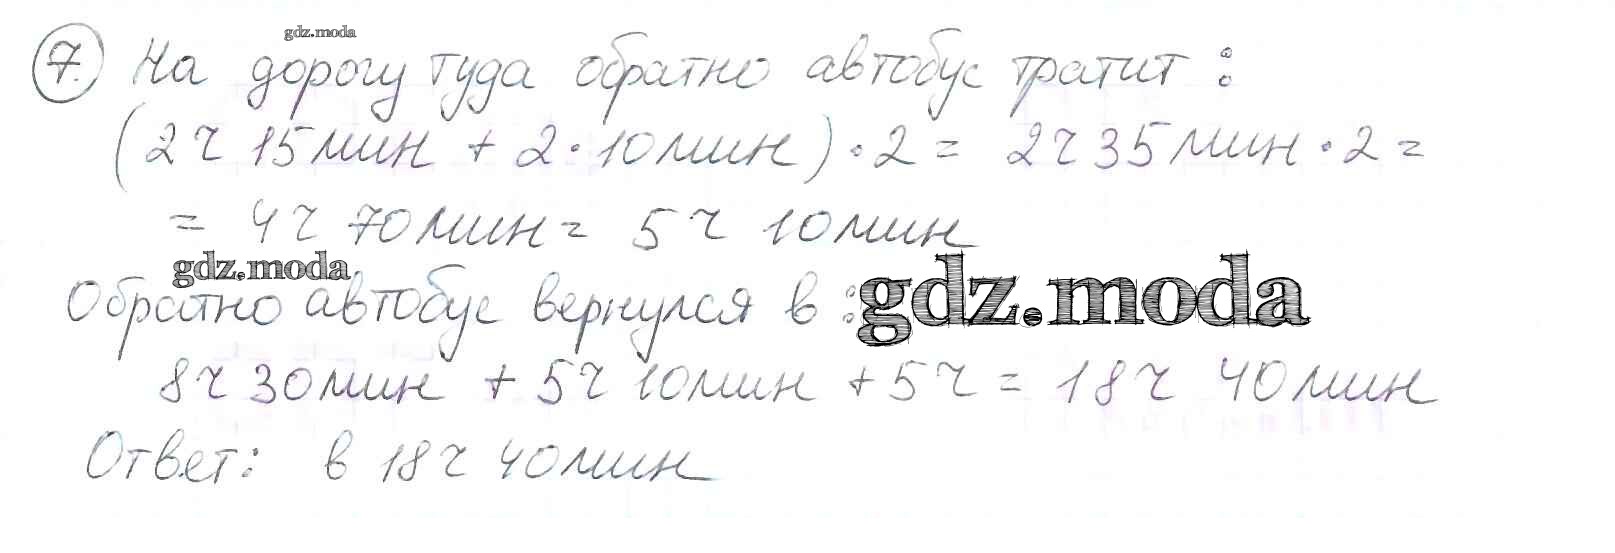 gdz.moda
7. На дорогу туда обратно автобус тратит:
(2ч 15мин + 2·10мин)·2= 2ч35мин·2=
= 4ч 70мин= 5ч 10мин
gdz.moda
Обратно автобус вернулся в: gdz.moda
8ч30мин +5ч10мин+5ч=18ч 40мин
Ответ: в 18ч 40мин